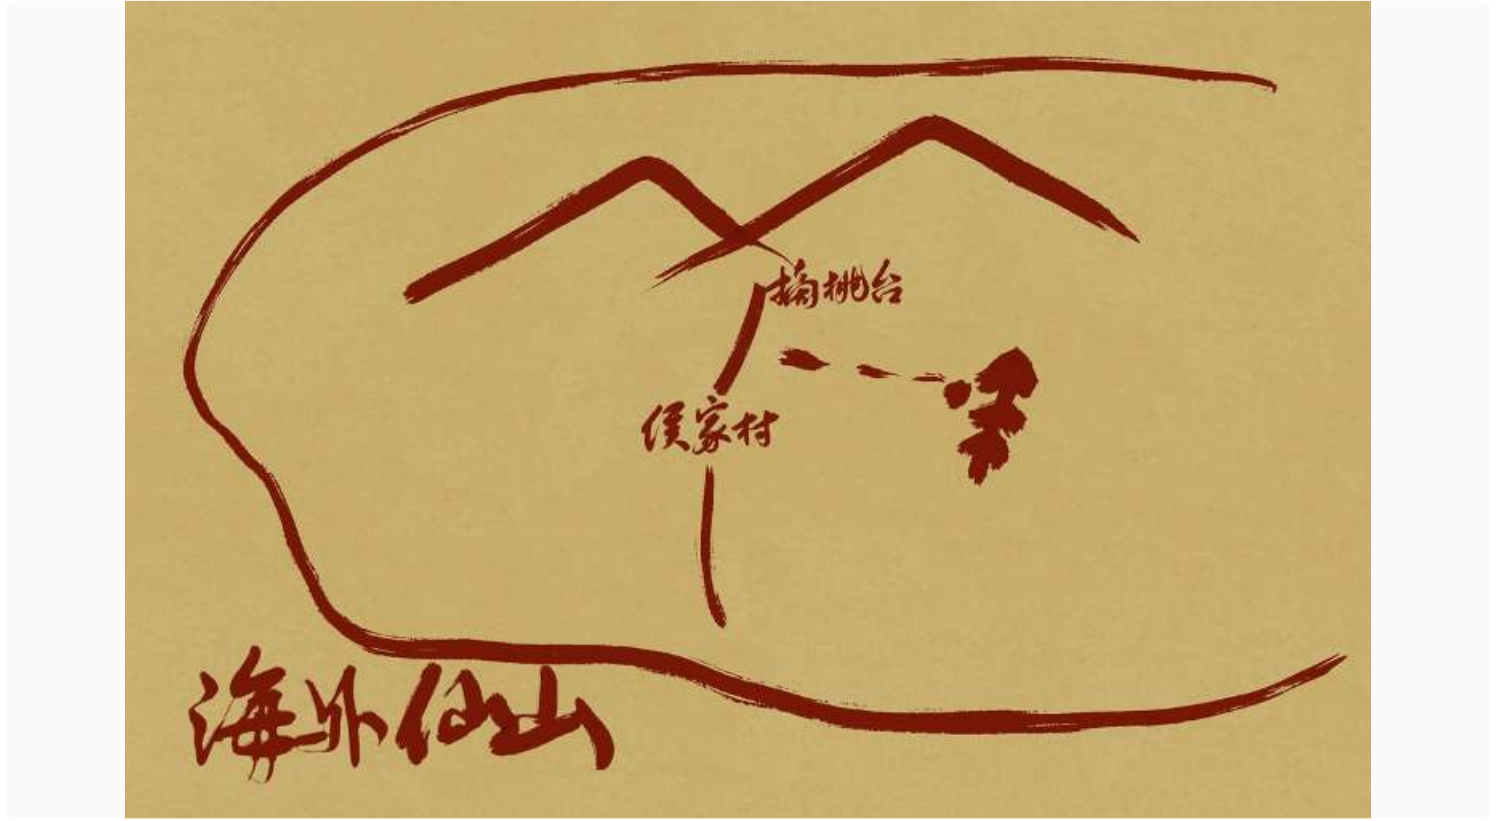 摘桃台
侯家村
海外仙山